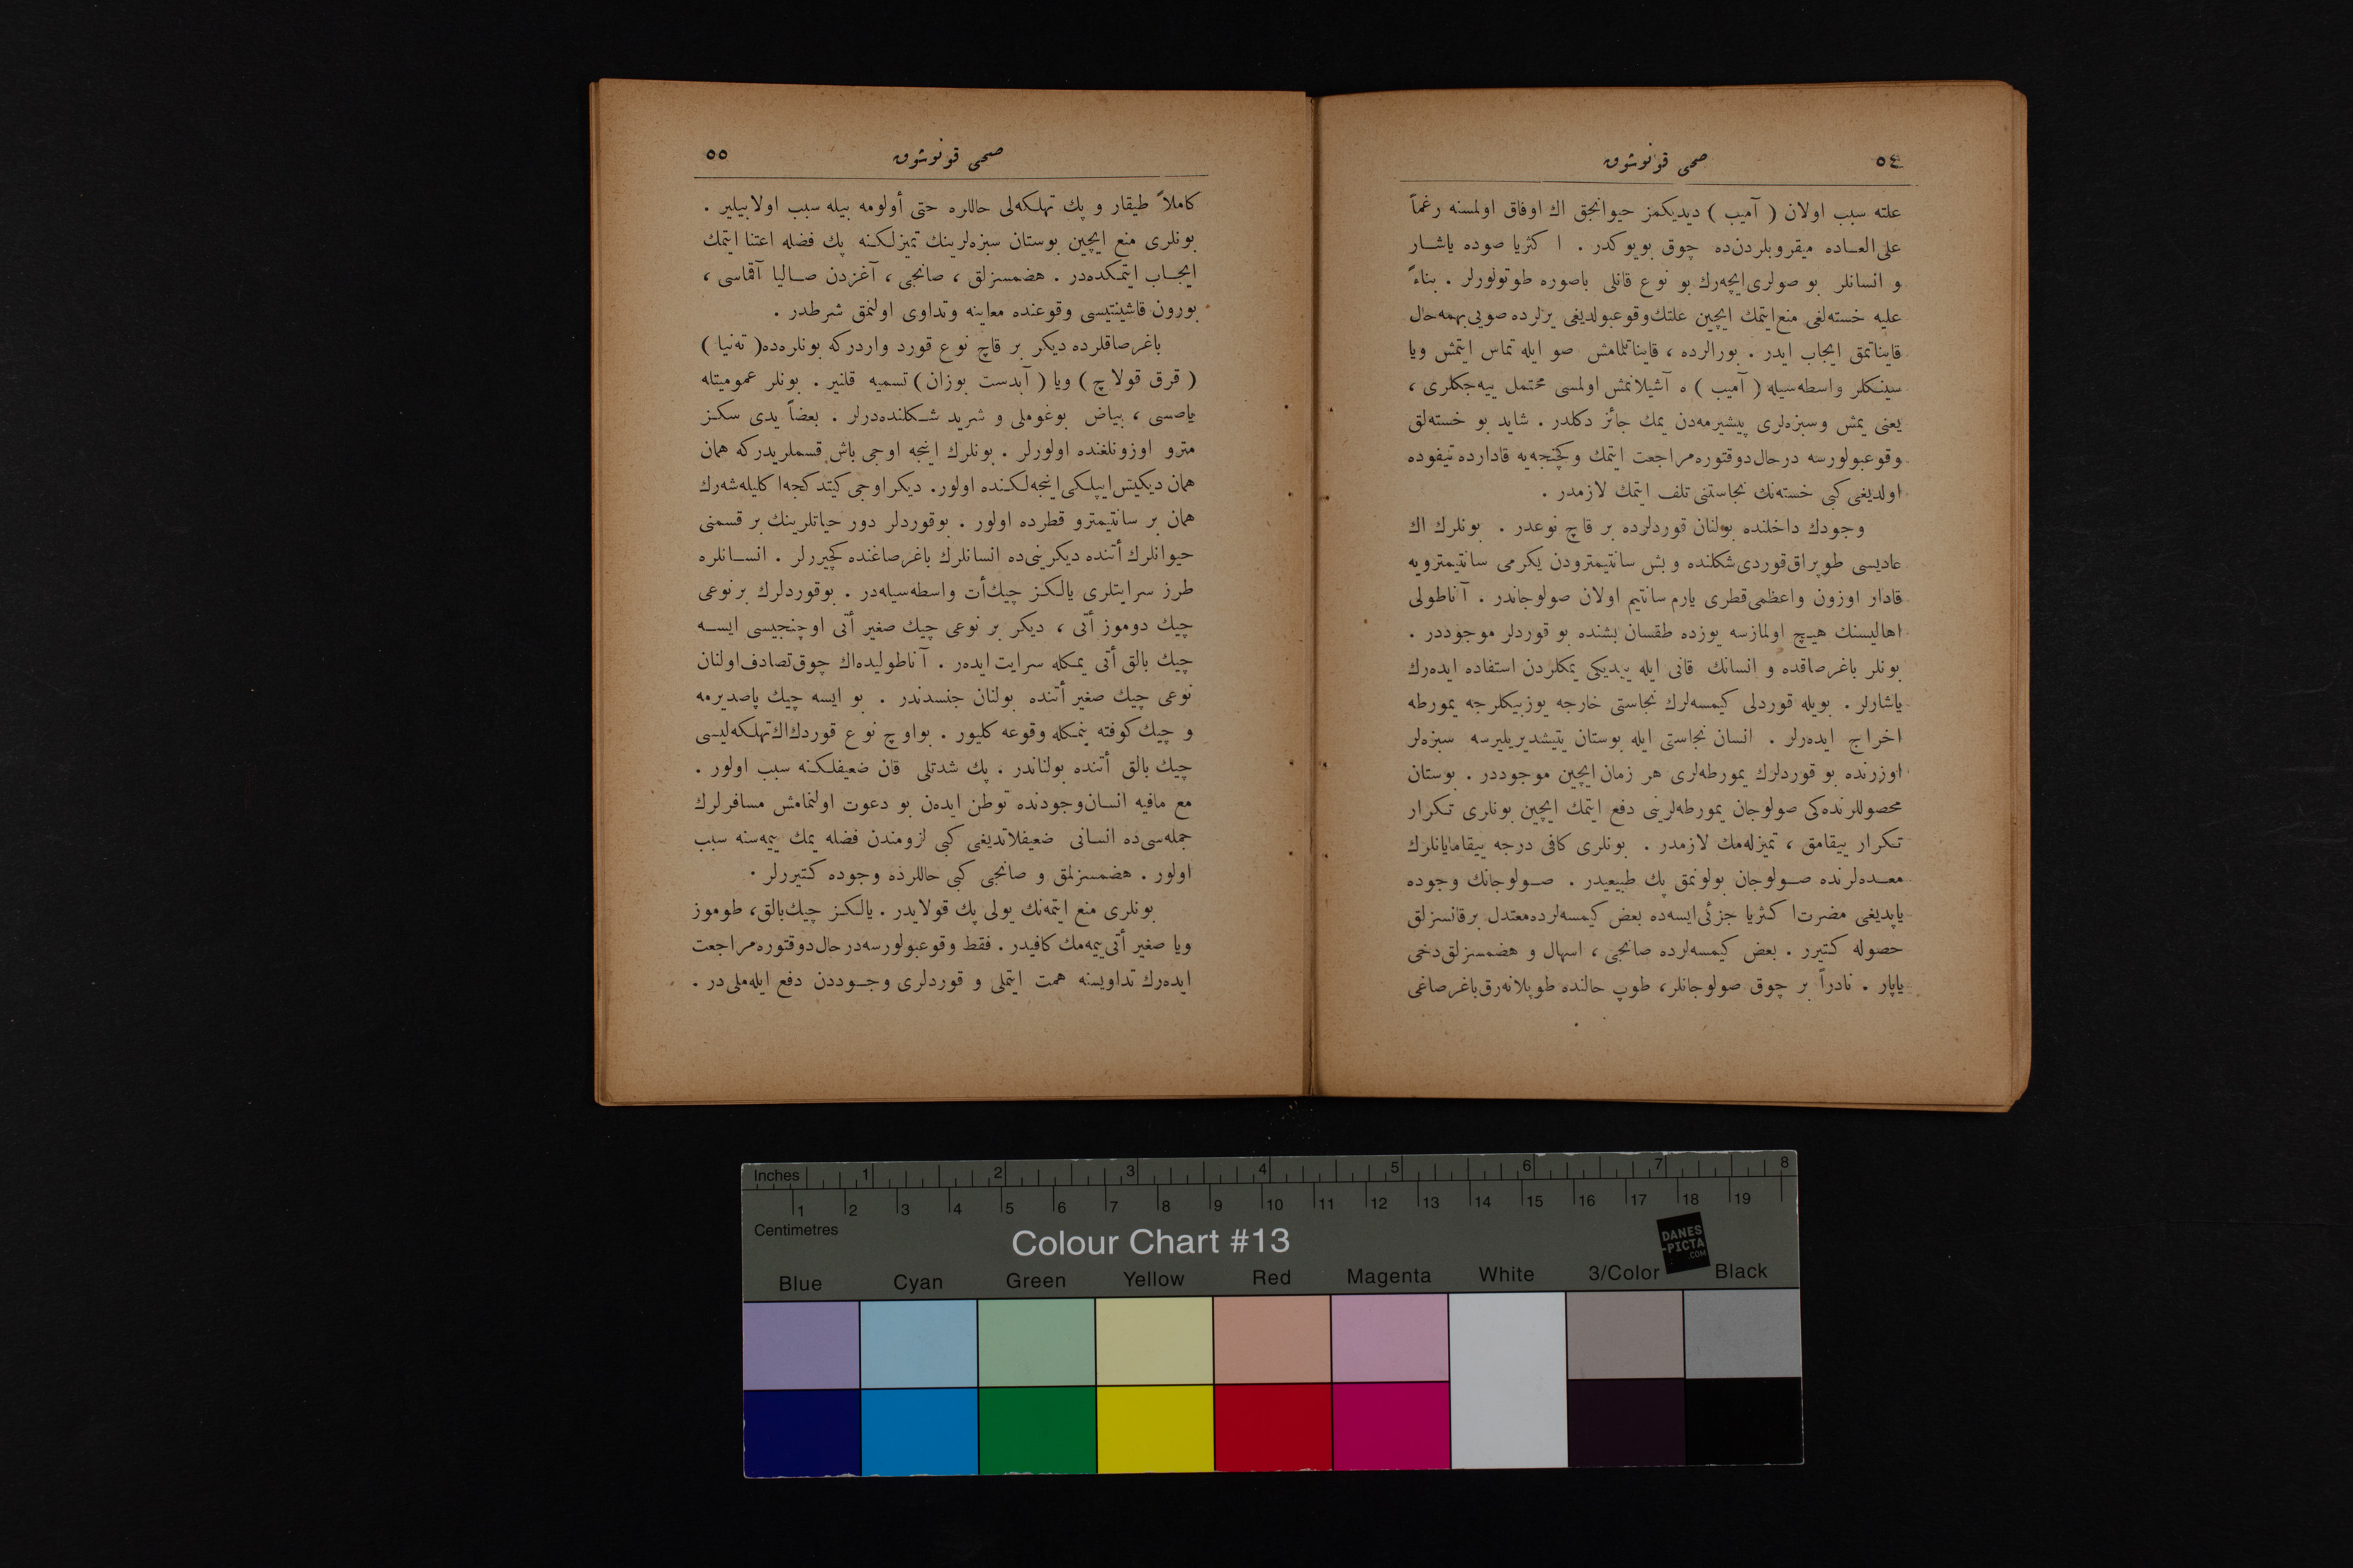 ٥٤
صحی قونوشوق
علته سبب اولان ( آمیب ) دیدیکمز حیوانجق اك اوفاق اولمسنه رغماً
علی‌العـاده میقروبلردن‌ده چوق بویوکدر . ا کثریا صوده یاشـار
و انسانلر بو صولری ایچه‌رك بو نوع قانلی باصوره طوتولورلر . بناءً
علیه خسته‌لغی منع ایتمك ایچین علتك وقوعبولدیغی یرلرده صویی بهمه‌حال
قایناتمق ایجاب ایدر . بورالرده ، قایناتلمامش صو ایله تماس ایتمش ویا
سینکلر واسطه‌سیله ( آمیب ) ه آشیلانمش اولمسی محتمل ییه‌جکلری ،
یعنی یمش وسبزه‌لری پیشیرمه‌دن یمك جائز دکلدر . شاید بو خسته‌لق
وقوعبولورسه درحال دوقتوره مراجعت ایتمك وکچنجه‌یه قادارده تیفوده
اولدیغی کبی خسته‌نك نجاستنی تلف ایتمك لازمدر .
وجودك داخلنده بولنان قوردلرده بر قاچ نوعدر . بونلرك اك
عادیسی طوپراق قوردی شکلنده و بش سانتیمترودن یکرمی سانتیمترویه
قادار اوزون واعظمی قطری یارم سانتیم اولان صولوجاندر . آناطولی
اهالیسنك هیچ اولمازسه یوزده طقسان بشنده بو قوردلر موجوددر .
بونلر باغرصاقده و انسانك قانی ایله ییدیکی یمکلردن استفاده ایده‌رك
یاشارلر . بویله قوردلی کیمسه‌لرك نجاستی خارجه یوزبیکلرجه یمورطه
اخراج ایده‌رلر . انسان نجاستی ایله بوستان یتیشدیریلیرسه سبزه‌لر
اوزرنده بو قوردلرك یمورطه‌لری هر زمان ایچین موجوددر . بوستان
محصوللرنده‌کی صولوجان یمورطه‌لرینی دفع ایتمك ایچین بونلری تکرار
تکرار ییقامق ، تمیزله‌مك لازمدر . بونلری کافی درجه ییقامایانلرك
معـده‌لرنده صـولوجان بولونمق پك طبیعیدر . صـولوجانك وجوده
یاپدیغی مضرت ا کثریا جزئی ایسه‌ده بعض کیمسه‌لرده معتدل برقانسزلق
حصوله کتیرر . بعض کیمسه‌لرده صانجی ، اسهال و هضمسزلق دخی
یاپار . نادراً بر چوق صولوجانلر، طوپ حالنده طوپلانه‌رق باغرصاغی
٥٥
صحی قونوشوق
کاملاً طیقار و پك تهلکه‌لی حاللره حتی أولومه بیله سبب اولابیلیر .
بونلری منع ایچین بوستان سبزه‌لرینك تمیزلکنه پك فضله اعتنا ایتمك
ایجـاب ایتمکده‌در . هضمسزلق ، صانجی ، آغزدن صـالیا آقماسی ،
بورون قاشینتیسی وقوعنده معاینه وتداوی اولنمق شرطدر .
باغرصاقلرده دیکر بر قاچ نوع قورد واردرکه بونلره‌ده ( ته‌نیا )
( قرق قولاچ ) ویا ( آبدست بوزان ) تسمیه قلنیر . بونلر عمومیتله
یاصسی ، بیاض بوغوملی و شرید شـکلنده‌درلر . بعضاً یدی سکز
مترو اوزونلغنده اولورلر . بونلرك اینجه اوجی باش قسملریدرکه همان
همان دیکیش ایپلکی اینجه‌لکنده اولور. دیکر اوجی کیتدکجه ا کلیله‌شه‌رك
همان بر سانتیمترو قطرده اولور . بوقوردلر دور حیاتلرینك بر قسمنی
حیوانلرك أتنده دیکرینی‌ده انسانلرك باغرصاغنده کچیررلر . انسـانلره
طرز سرایتلری یالکز چیك أت واسطه‌سیله‌در . بوقوردلرك برنوعی
چیك دوموز أتی ، دیکر بر نوعی چیك صغیر أتی اوچنجیسی ایسـه
چیك بالق أتی یمکله سرایت ایده‌ر . آناطولیده اك چوق تصادف اولنان
نوعی چیك صغیر أتنده بولنان جنسدندر . بو ایسه چیك پاصدیرمه
و چیك کوفته ییمکله وقوعه کلیور . بواوچ نوع قوردك اك تهلکه‌لیسی
چیك بالق أتنده بولناندر . پك شدتلی قان ضعیفلکنه سبب اولور .
مع مافیه انسان وجودنده توطن ایده‌ن بو دعوت اولنمامش مسافرلرك
جمله‌سی‌ده انسانی ضعیفلاتدیغی کبی لزومندن فضله یمك ییمه‌سنه سبب
اولور . هضمسزلق و صانجی کبی حاللرده وجوده کتیررلر .
بونلری منع ایتمه‌نك یولی پك قولایدر . یالکز چیك بالق، طوموز
ویا صغیر أتی ییمه‌مك کافیدر . فقط وقوعبولورسه درحال دوقتوره مراجعت
ایده‌رك تداویسنه همت ایتملی و قوردلری وجـوددن دفع ایله‌ملی‌در .
Inches 1 2 3 4 5 6 7 8
1 2 3 4 5 6 7 8 9 10 11 12 13 14 15 16 17 18 19
Centimetres
Colour Chart #13
DANES
-PICTA
.COM
Blue Cyan Green Yellow Red Magenta White 3/Color Black